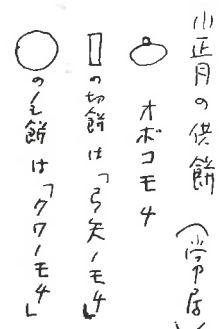 小正月の供餅（常居）
オボコモチ
の切餅は「弓矢ノモチ」
の丸餅は「クワノモチ」